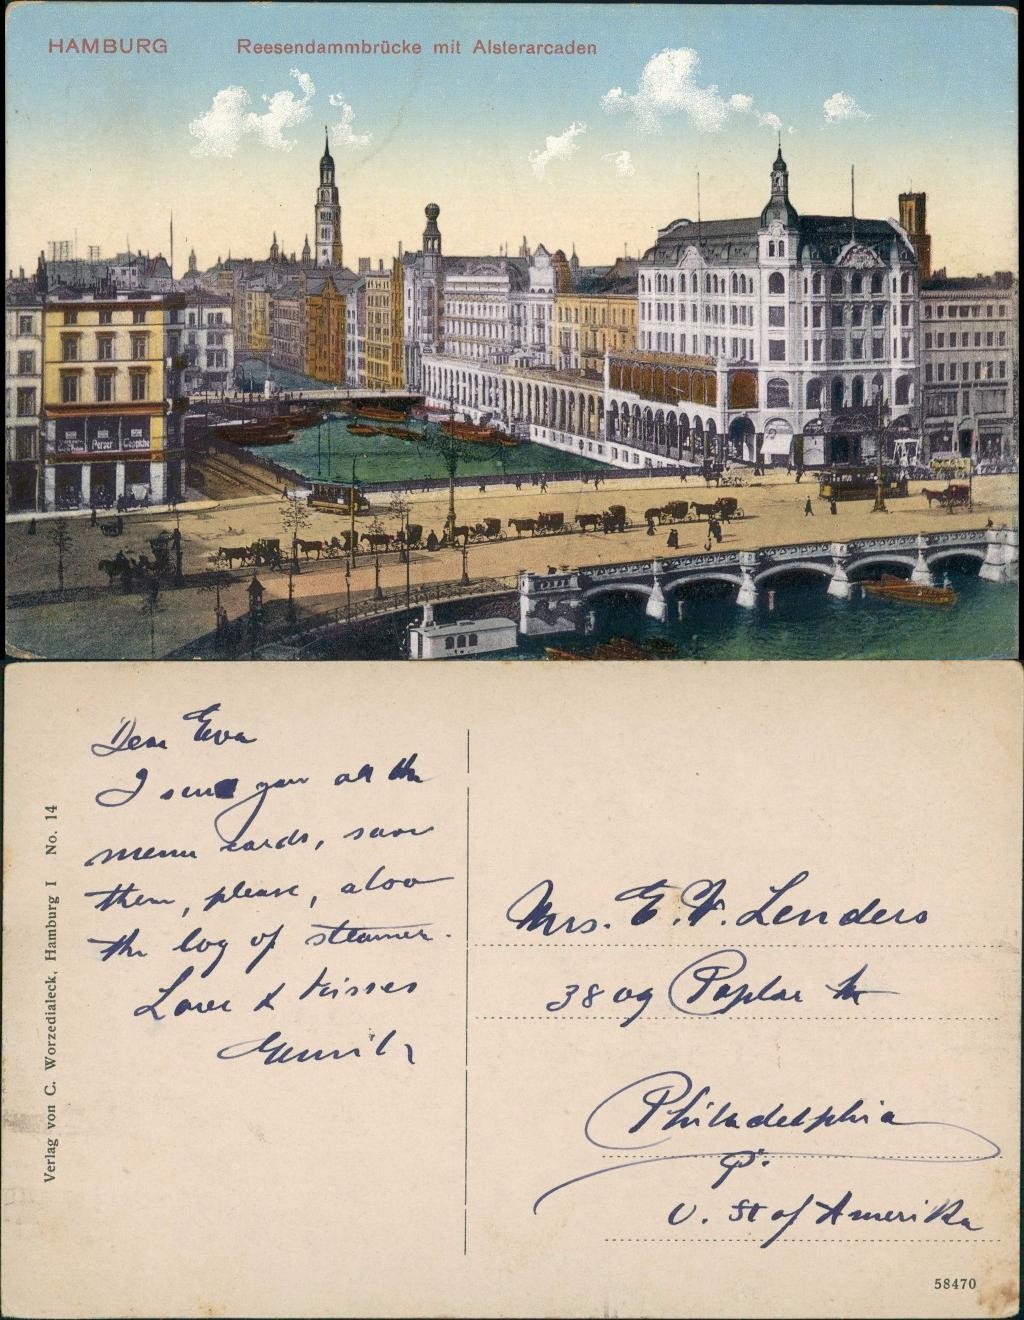 HAMBURG Reesendammbrücke mit Alsterarcaden
Perser Teppiche
Dear Eva
I send you all the
menu cards, save
them, please, also
the log of steamer.
Love & kisses
Mrs. E. W. Lenders
3809 Poplar
Philadelphia
P.
U. St of Amerika
Verlag von C. Worzedialeck, Hamburg I No. 14
58470